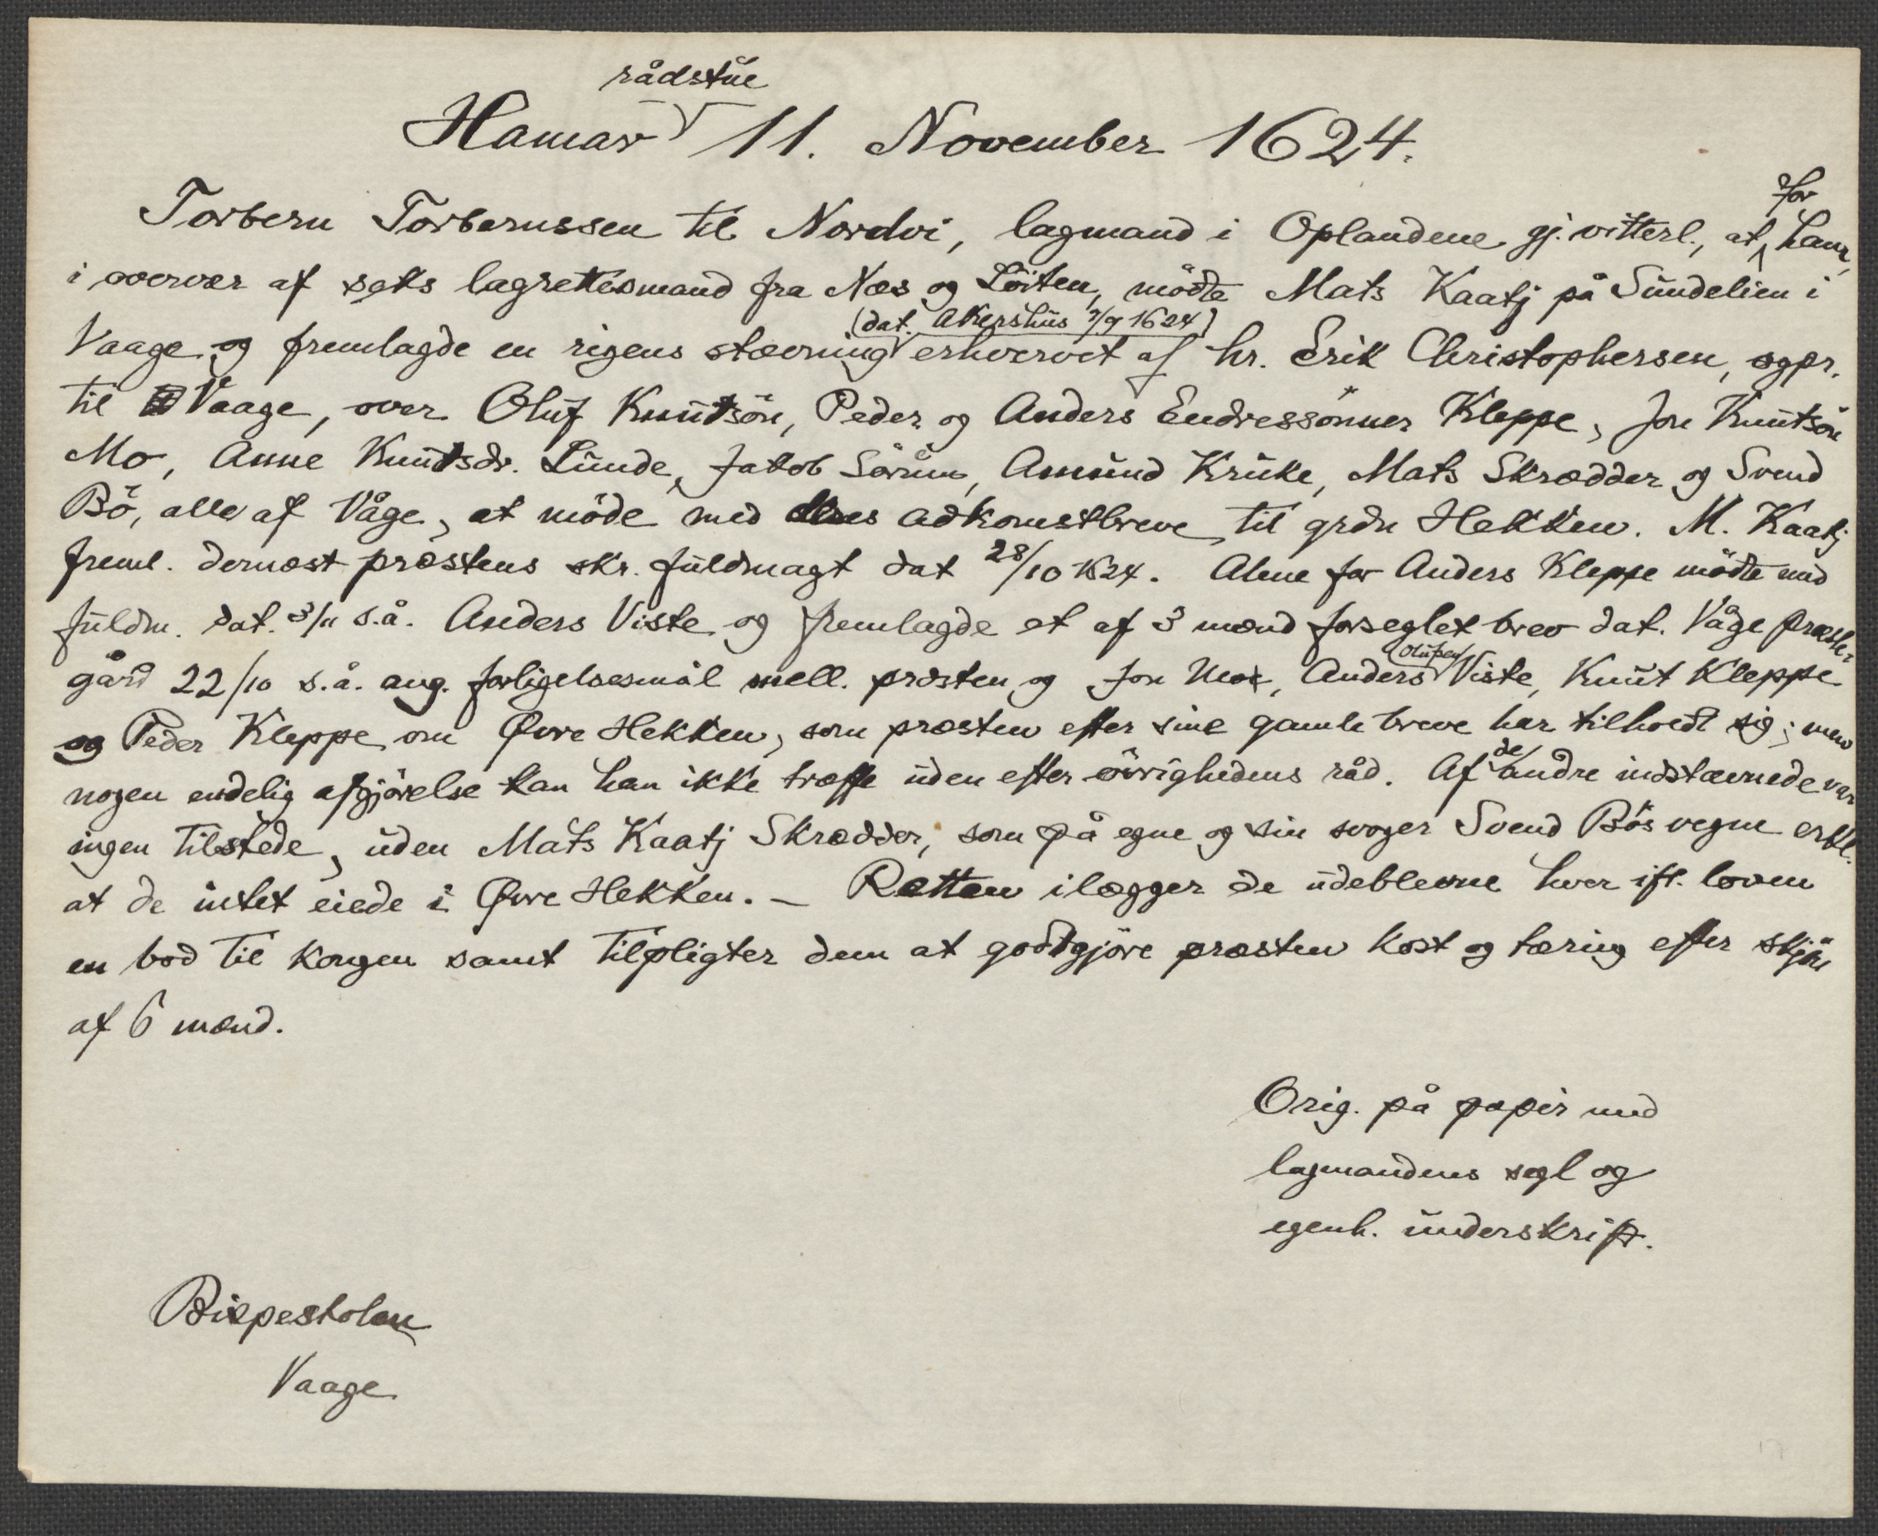 rådstue
Hamar 11. November 1624.
for
Torbern Torbernssen til Nordvi, lagmand i Oplandene gj. vitterl., at ham,
i overvær af seks lagrettesmænd fra Næs og Löiten, mödte Mats Kaatj på Sundelien i
(dat. Akershus 7/9 1624)
Vaage og fremlagde en rigens stævning erhvervet af hr. Erik Christophersen, sgpr.
til Vaage, over Oluf Knutsön, Peder og Anders Endressönner Kleppe, Jon Knutsön
Mo, Anne Knutsdr. Lunde, Jakob Sörum, Amund Kruke, Mats Skrædder og Svend
Bö, alle af Våge, at möde med deres adkomstbreve til grdn Hekken. M. Kaatj
freml. dernæst præstens skr. fuldmagt dat 28/10 1624. Alene for Anders Kleppe mödte med
fuldm. dat. 3/11 s.å. Anders Viste og fremlagde et af 3 mænd forseglet brev dat. Våge præste-
Olufsen
gård 22/10 s.å. ang. forligelsesmål mell. præsten og Jon Mo, Anders Viste, Knut Kleppe
og Peder Kleppe om Øvre Hekken, som præsten efter sine gamle breve har tilholdt sig; men
de
nogen endelig afgjörelse kan han ikke træffe uden efter övrighedens råd. Af andre indstævnede var
ingen tilstede, uden Mats Kaatj Skrædder, som på egne og sin svoger Svend Bös vegne erkl.
at de intet eiede i Øvre Hekken. – Retten ilægger de udeblevne hver ifl. loven
en bod til kongen samt tilpligter dem at godtgjöre præsten kost og tæring efter skjön
af 6 mænd.
Orig. på papir med
lagmandens segl og
egenh. underskrift.
Bispestolen
Vaage